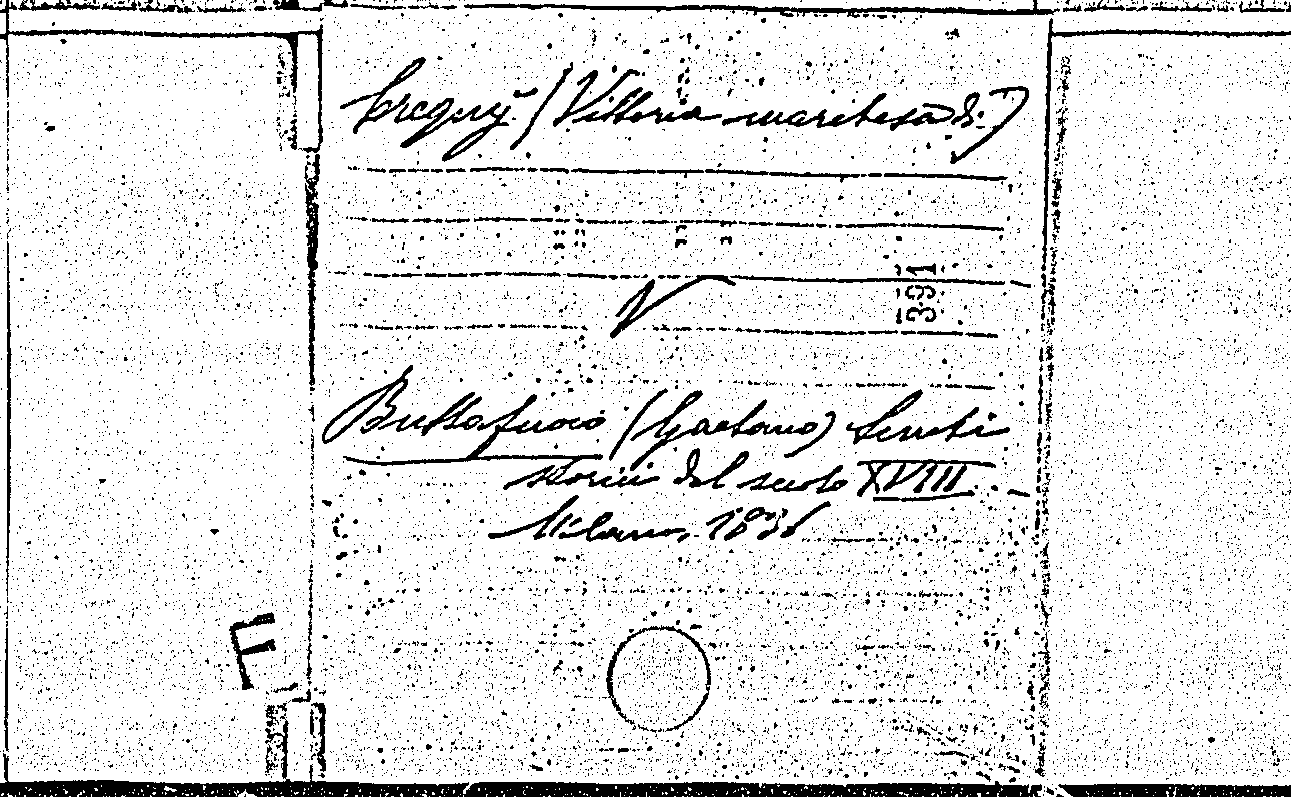 Cregny (Vittoria marchesa di)
391
Buttafuoco (Gaetano)
storici del secolo XVIII
Milano, 183
F